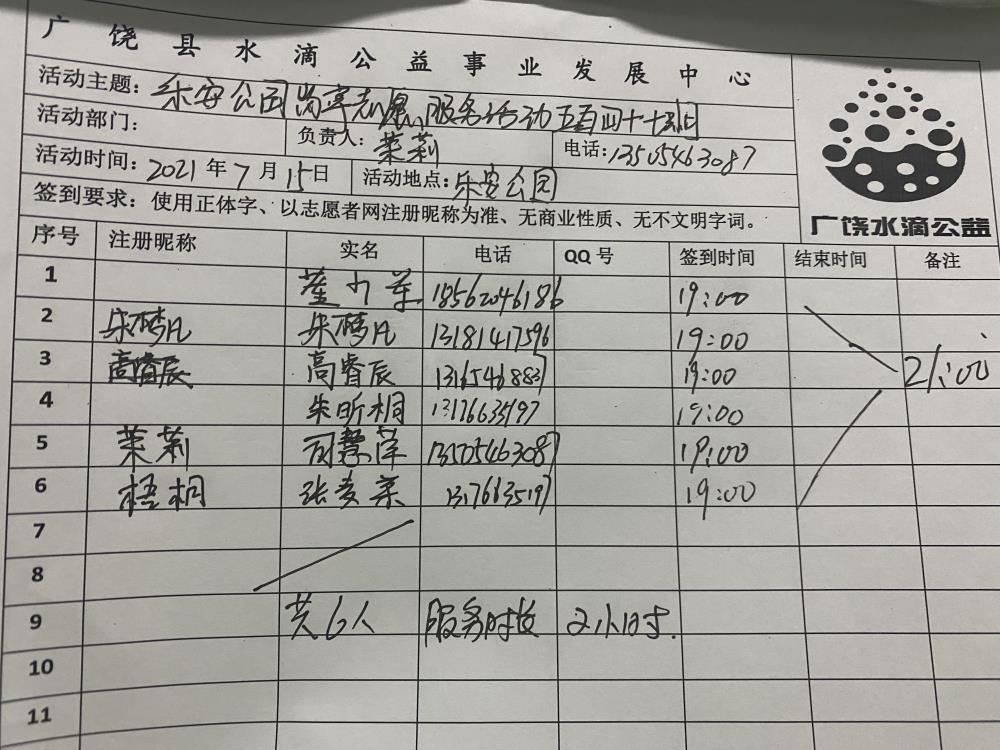 广饶县水滴公益事业发展中心
活动主题：乐安公园岗亭志愿服务活动五百四十七期
活动部门： 负责人：茉莉 电话：13505463087
活动时间：2021年7月15日 活动地点：乐安公园
签到要求：使用正体字、以志愿者网注册昵称为准、无商业性质、无不文明字词。
广饶水滴公益
序号 注册昵称 实名 电话 QQ号 签到时间 结束时间 备注
1 18562046186 19:00
2 朱梦凡 朱梦凡 13181417596 19:00
3 高睿辰 高睿辰 13165468837 19:00 21:00
4 朱昕桐 13176635197 19:00
5 茉莉 司慧萍 13505463087 19:00
6 梧桐 张麦菜 13176635197 19:00
7
8
9 共6人 服务时长 2小时.
10
11